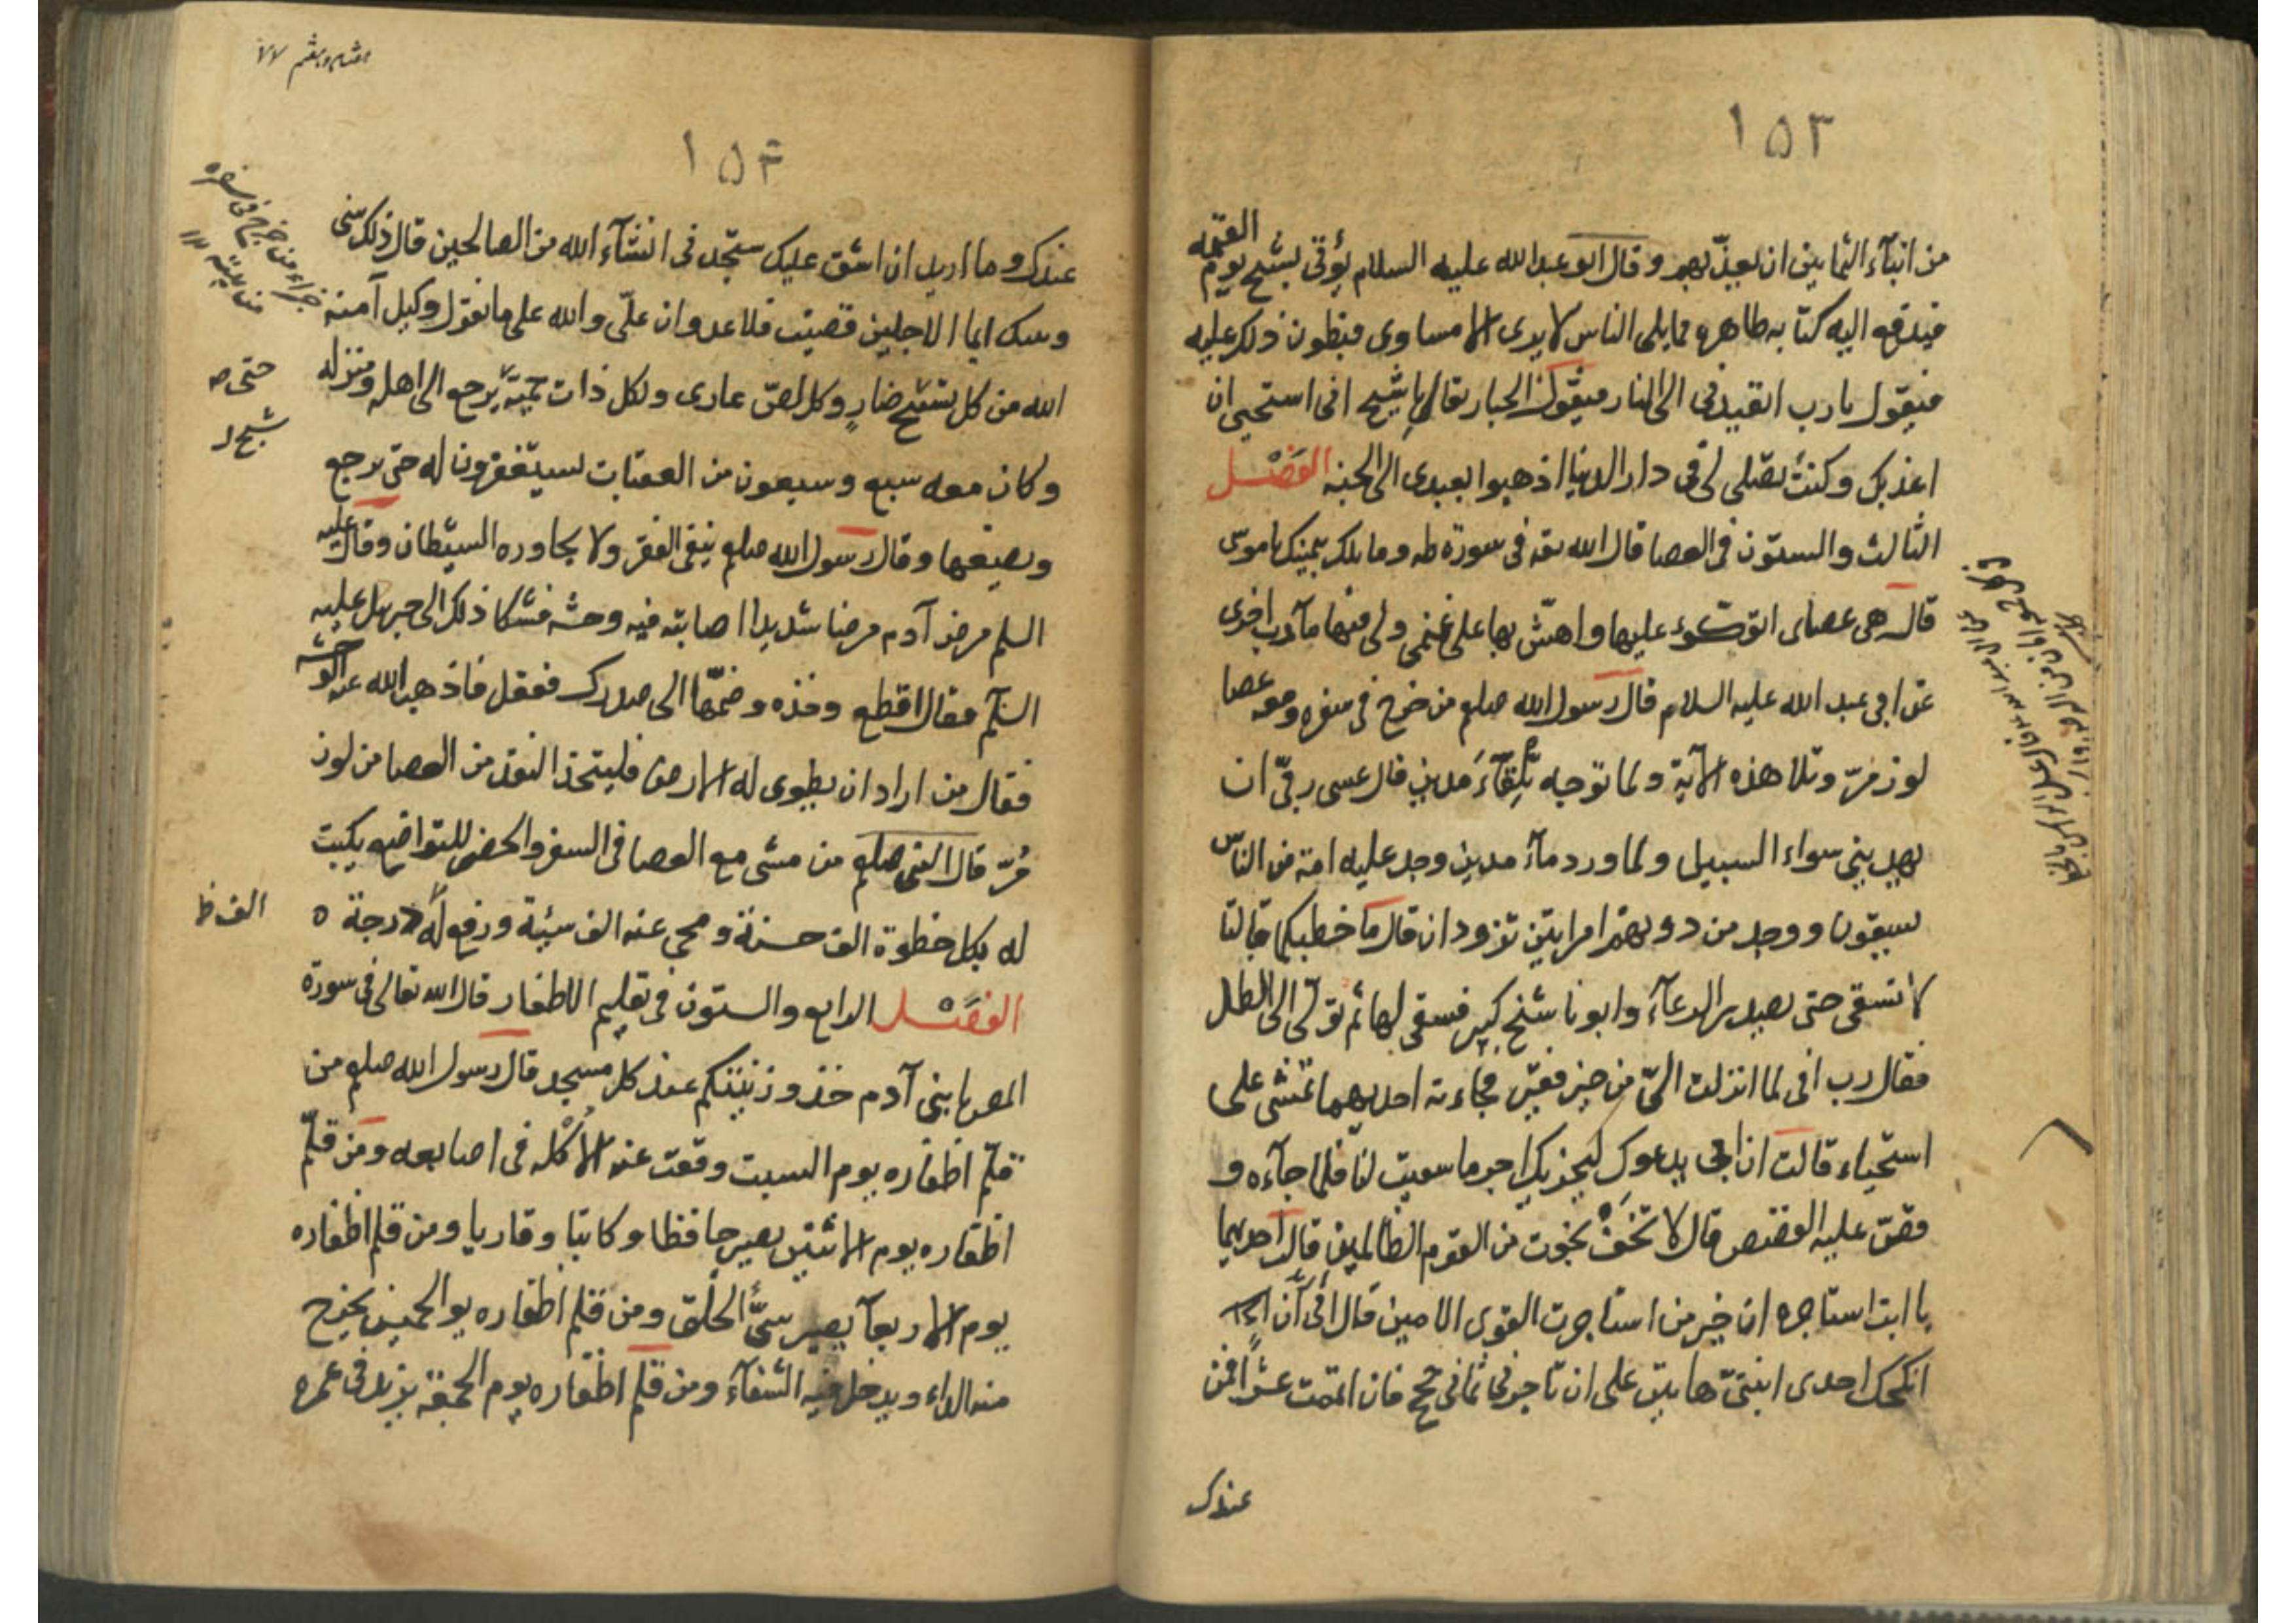 ١٥٣
من ابناء الثمانين ان يعذبهم وقال ابو عبد الله عليه السلام يؤتى بشيخ يوم القيمه
فيدفع اليه كتابه ظاهره مما يلي الناس لا يرى الا مساوى فيطون ذلك عليه
فيقول يا رب اتقيدنى الى النار فيقول الجبار تعالى يا شيخ انى استحيى ان
اعذبك وكنت تصلى لى فى دار الدنيا اذهبوا بعبدى الى الجنه الفصل
الثالث والستون فى العصا قال الله تعه فى سورة طه وما تلك بيمينك يا موسى
قال هى عصاى اتوكؤ عليها واهش بها على غنمى ولى فيها مآرب اخرى
عن ابى عبد الله عليه السلام قال رسول الله صلعم من خرج فى سفره ومعه عصا
لوز مرّ وتلا هذه الآية ولما توجه تلقآء مدين قال عسى ربّى ان
يهدينى سواء السبيل ولما ورد مآء مدين وجد عليه امة من الناس
يسقون ووجد من دونهم امرأتين تذودان قال ما خطبكما قالتا
لا نسقى حتى يصدر الرعآء وابونا شيخ كبير فسقى لهما ثم تولى الى الظل
فقال رب انى لما انزلت الىّ من خير فقير فجاءته احديهما تمشى على
استحياء قالت ان ابى يدعوك ليجزيك اجر ما سقيت لنا فلما جآءه و
قصّ عليه القصص قال لا تخف نجوت من القوم الظالمين قالت احديهما
يا ابت استاجره ان خير من استاجرت القوى الامين قال انى اريد ان
انكحك احدى ابنتىّ هاتين على ان تاجرنى ثمانى حجج فان اتممت عشرا فمن
عندك
٧٧
١٥٤
عندك وما اريد ان اشق عليك ستجدنى انشآء الله من الصالحين قال ذلك بينى
وبينك ايما الاجلين قضيت فلا عدوان علىّ والله على ما نقول وكيل آمنه
الله من كل سبع ضارٍ وكل لصّ عادى ولكل ذات حمية يرجع الى اهله ومنزله
حتى
وكان معه سبع وسبعون من المعقبات يستغفرون له حتى يرجع
ويضعها وقال رسول الله صلعم ينفى الفقر ولا يجاوره الشيطان وقال عليه
السلم مرض آدم مرضا شديدا اصابته فيه وحشه فشكا ذلك الى جبريل عليه
السلم فقال اقطع وخذه وضمّها الى صدرك ففعل فاذهب الله عنه الوحشه
فقال من اراد ان يطوى له الارض فليتخذ النقد من العصا من لوز
مُرّ قال النبى صلعم من مشى مع العصا فى السفر والحضر للتواضع يكتب
له بكل خطوة الف حسنة ومحى عنه الف سيئة ورفع له درجة ٥
الف ظ
الفصل الرابع والستون فى تقليم الاظفار قال الله تعالى فى سورة
المص يا بنى آدم خذوا زينتكم عند كل مسجد قال رسول الله صلعم من
قلّم اظفاره يوم السبت وقعت عنه الاكلة فى اصابعه ومن قلّم
اظفاره يوم الاثنين يصير حافظا وكاتبا وقاريا ومن قلم اظفاره
يوم الاربعآ يصير سىّء الخلق ومن قلم اظفاره يو الخميس يخرج
منه الداء ويدخل فيه الشفآء ومن قلم اظفاره يوم الجمعة يزيد فى عمره